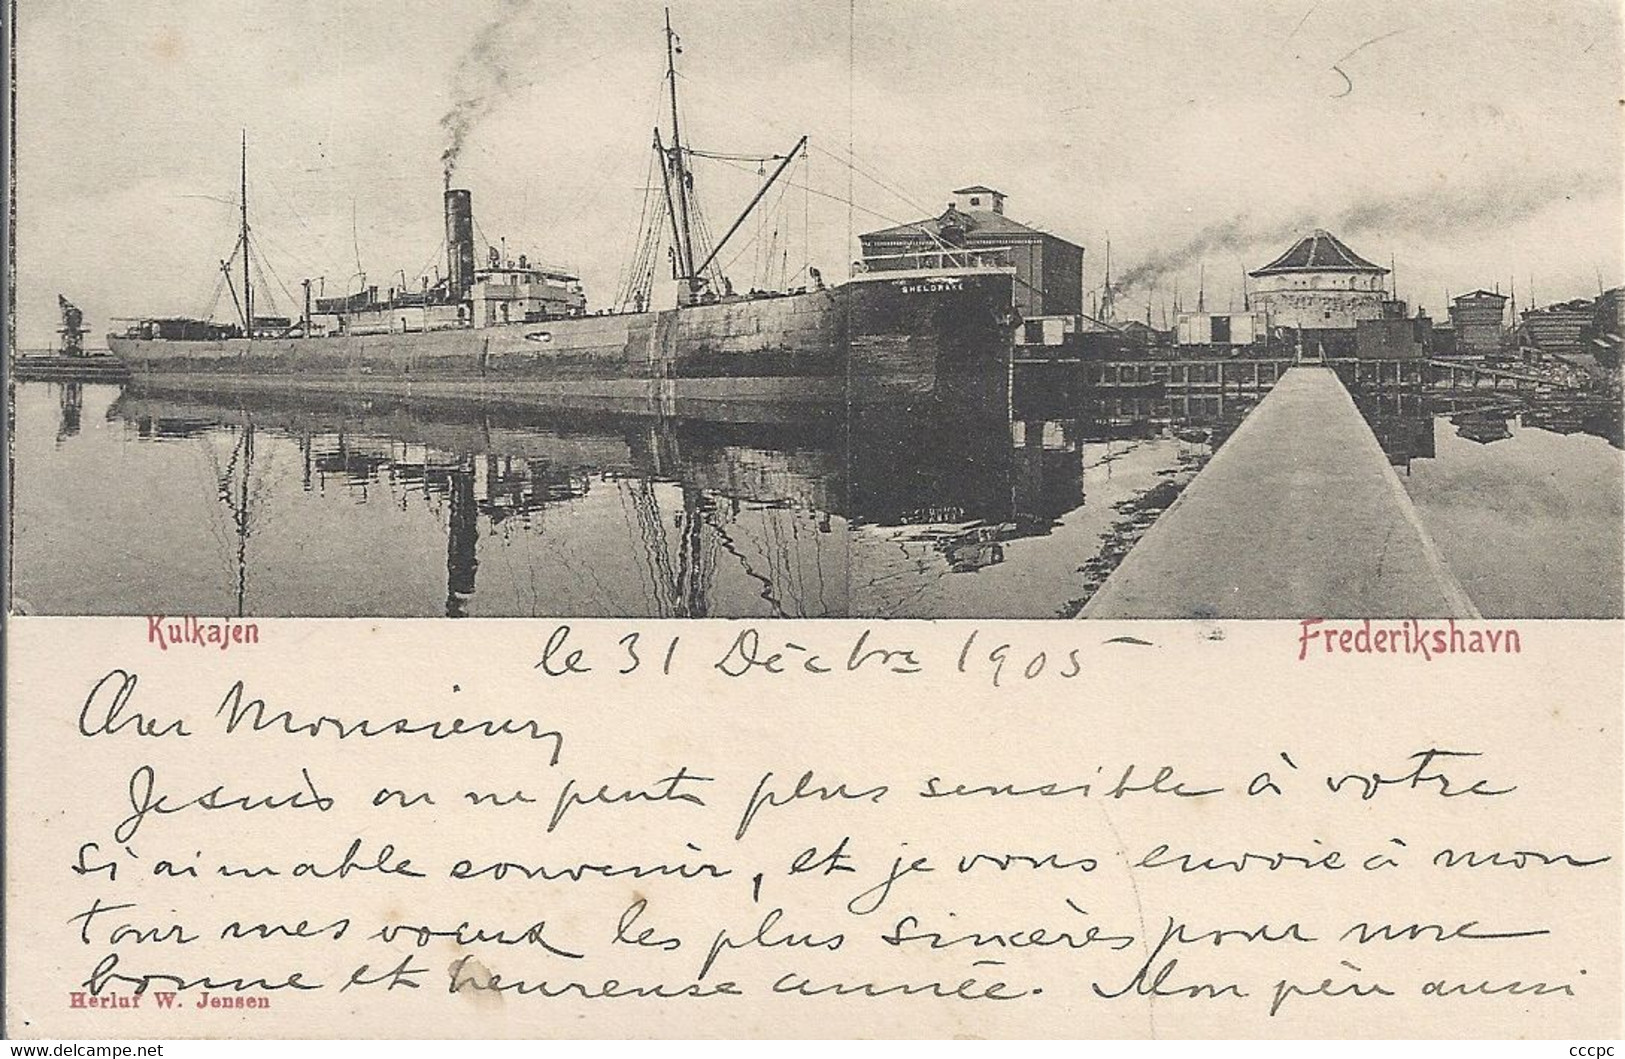 SHELDRAKE
Kulkajen
Frederikshavn
le 31 Décbre 1905
Cher Monsieur,
Je suis on ne peut plus sensible à votre
si aimable souvenir, et je vous envoie à mon
tour mes voeux les plus sincères pour une
bonne et heureuse année. Mon père aussi
Herluf W. Jensen
cccpc